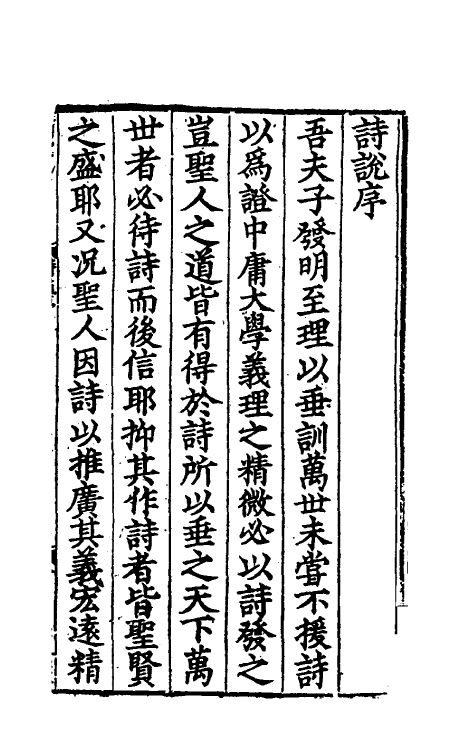 詩說序
吾夫子發明至理以垂訓萬世未嘗不援詩
以爲證中庸大學義理之精微必以詩發之
豈聖人之道皆有得於詩所以垂之天下萬
世者必待詩而後信耶抑其作詩者皆聖賢
之盛耶又况聖人因詩以推廣其義宏遠精